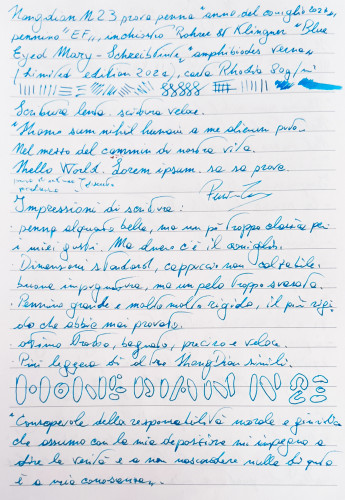 HongDian M23 prova penna "anno del coniglio 2023",
pennino "EF", inchiostro Rohrer & Klingner "Blue
Eyed Mary - Schreibtinte" amphibiodes vernus
(limited edition 2022), carta Rhodia 80g/m²
Scrittura lenta, scrittura veloce.
"Homo sum nihil humani a me alienum puto.
Nel mezzo del cammin di nostra vita.
Hello World. Lorem ipsum. sa sa prova.
prova di scrittura
Impressioni di scrittura:
- penna alquanto bella, ma un pò troppo classica per
i miei gusti. Ma dove c'è il coniglio.
- Dimensioni standard, cappuccio non calzabile.
- buona impugnatura, ma un pelo troppo svasata.
- Pennino grande e molto molto rigido, il più rigi
do che abbia mai provato.
- ottimo tratto, bagnato, preciso e veloce.
- Più leggera di altre HongDian simili.
"Consapevole della responsabilità morale e giuridica
che assumo con la mia deposizione mi impegno a
dire la verità e a non nascondere nulla di quanto
è a mia conoscenza.